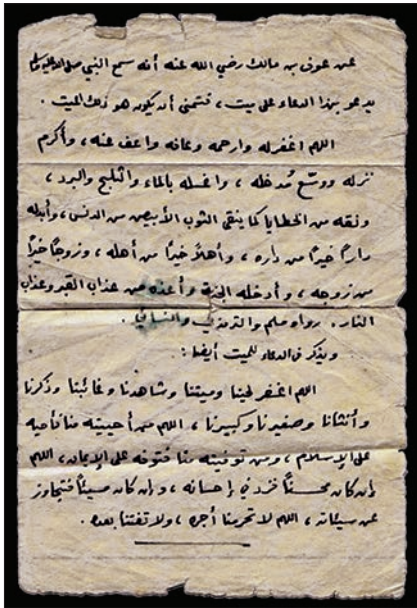 عن عوف بن مالك رضي الله عنه أنه سمع النبي صلى الله عليه وسلم
يدعو بهذا الدعاء على ميت ، فتمنى أن يكون هو ذلك الميت .
اللهم اغفر له وارحمه وعافه واعف عنه ، وأكرم
نزله ووسّع مُدخله ، واغسله بالماء والثلج والبرد ،
ونقه من الخطايا كما ينقى الثوب الأبيض من الدنس ، وأبدله
داراً خيراً من داره ، وأهلاً خيراً من أهله ، وزوجاً خيراً
من زوجه ، وأدخله الجنة وأعذه من عذاب القبر وعذاب
النار . رواه مسلم والترمذي والنسائي .
ويذكر في الدعاء للميت أيضاً :
اللهم اغفر لحينا وميتنا وشاهدنا وغائبنا وذكرنا
وأنثانا وصغيرنا وكبيرنا ، اللهم من أحييته منا فأحيه
على الإسلام ، ومن توفيته منا فتوفه على الإيمان ، اللهم
إن كان محسناً فزد في إحسانه ، وإن كان مسيئاً فتجاوز
عن سيئاته ، اللهم لا تحرمنا أجره ، ولا تفتنا بعده .